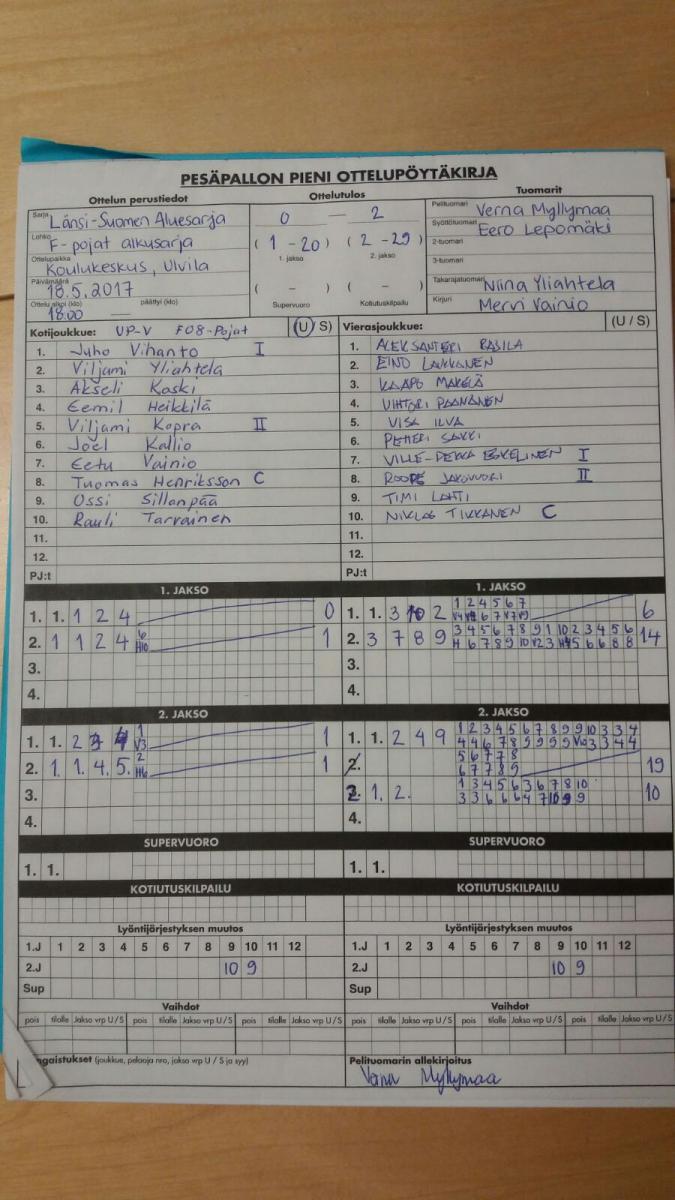 PESÄPALLON PIENI OTTELUPÖYTÄKIRJA
Ottelun perustiedot Ottelutulos Tuomarit
Sarja Länsi-Suomen Aluesarja
Lohko F-pojat alkusarja
Ottelupaikka Koulukeskus, Ulvila
Päivämäärä 18.5.2017
Ottelu alkoi (klo) 18:00 päättyi (klo)
0 — 2
( 1 - 20 ) ( 2 - 29 )
1. jakso 2. jakso
( - ) ( - )
Supervuoro Kotiutuskilpailu
Pelituomari Verna Myllymaa
Syöttötuomari Eero Lepomäki
2-tuomari
3-tuomari
Takarajatuomari Niina Yliahtela
Kirjuri Mervi Vainio
Kotijoukkue: UP-V F08-Pojat (U/S)
1. Juho Vihanto I
2. Viljami Yliahtela
3. Akseli Kaski
4. Eemil Heikkilä
5. Viljami Kopra II
6. Joel Kallio
7. Eetu Vainio
8. Tuomas Henriksson C
9. Ossi Sillanpää
10. Rauli Tarvainen
11.
12.
PJ:t
Vierasjoukkue: (U / S)
1. ALEKSANTERI RASILA
2. EINO LAUKKANEN
3. KAAPO MÄKELÄ
4. VIHTORI PAANANEN
5. VISA ILVA
6. PETTERI SAKKI
7. VILLE-PEKKA ESKELINEN I
8. ROOPE JAKOVUORI II
9. TIMI LAHTI
10. NIKLAS TIKKANEN C
11.
12.
PJ:t
1. JAKSO
1. 1. 1 2 4 0
2. 1 1 2 4 6 1
H10
3.
4.
1. JAKSO
1. 1. 3 10 2 1 2 4 5 6 7 6
2. 3 7 8 9 3 4 5 6 7 8 9 1 10 2 3 4 5 6 14
3.
4.
2. JAKSO
1. 1. 2 4 1 1
V3
2. 1. 1. 4. 5. 2 1
H6
3.
4.
2. JAKSO
1. 1. 2 4 9 1 2 3 4 5 6 7 8 9 9 10 3 3 4
4 4 6 7 8 9 9 9 9 V10 3 3 4 4
5 6 7 7 8
2. 6 7 7 8 9 19
2. 1. 2. 1 3 4 5 6 3 6 7 8 10 10
3 3 6 6 6 4 7 10 9 9
4.
SUPERVUORO
1. 1.
SUPERVUORO
1. 1.
KOTIUTUSKILPAILU
KOTIUTUSKILPAILU
Lyöntijärjestyksen muutos
1.J 1 2 3 4 5 6 7 8 9 10 11 12
2.J 10 9
Sup
Lyöntijärjestyksen muutos
1.J 1 2 3 4 5 6 7 8 9 10 11 12
2.J 10 9
Sup
Vaihdot
pois tilalle Jakso vrp U/S pois tilalle Jakso vrp U/S pois tilalle Jakso vrp U/S
Vaihdot
pois tilalle Jakso vrp U/S pois tilalle Jakso vrp U/S pois tilalle Jakso vrp U/S
ngaistukset (joukkue, pelaaja nro, jakso vrp U / S ja syy)
Pelituomarin allekirjoitus
Verna Myllymaa